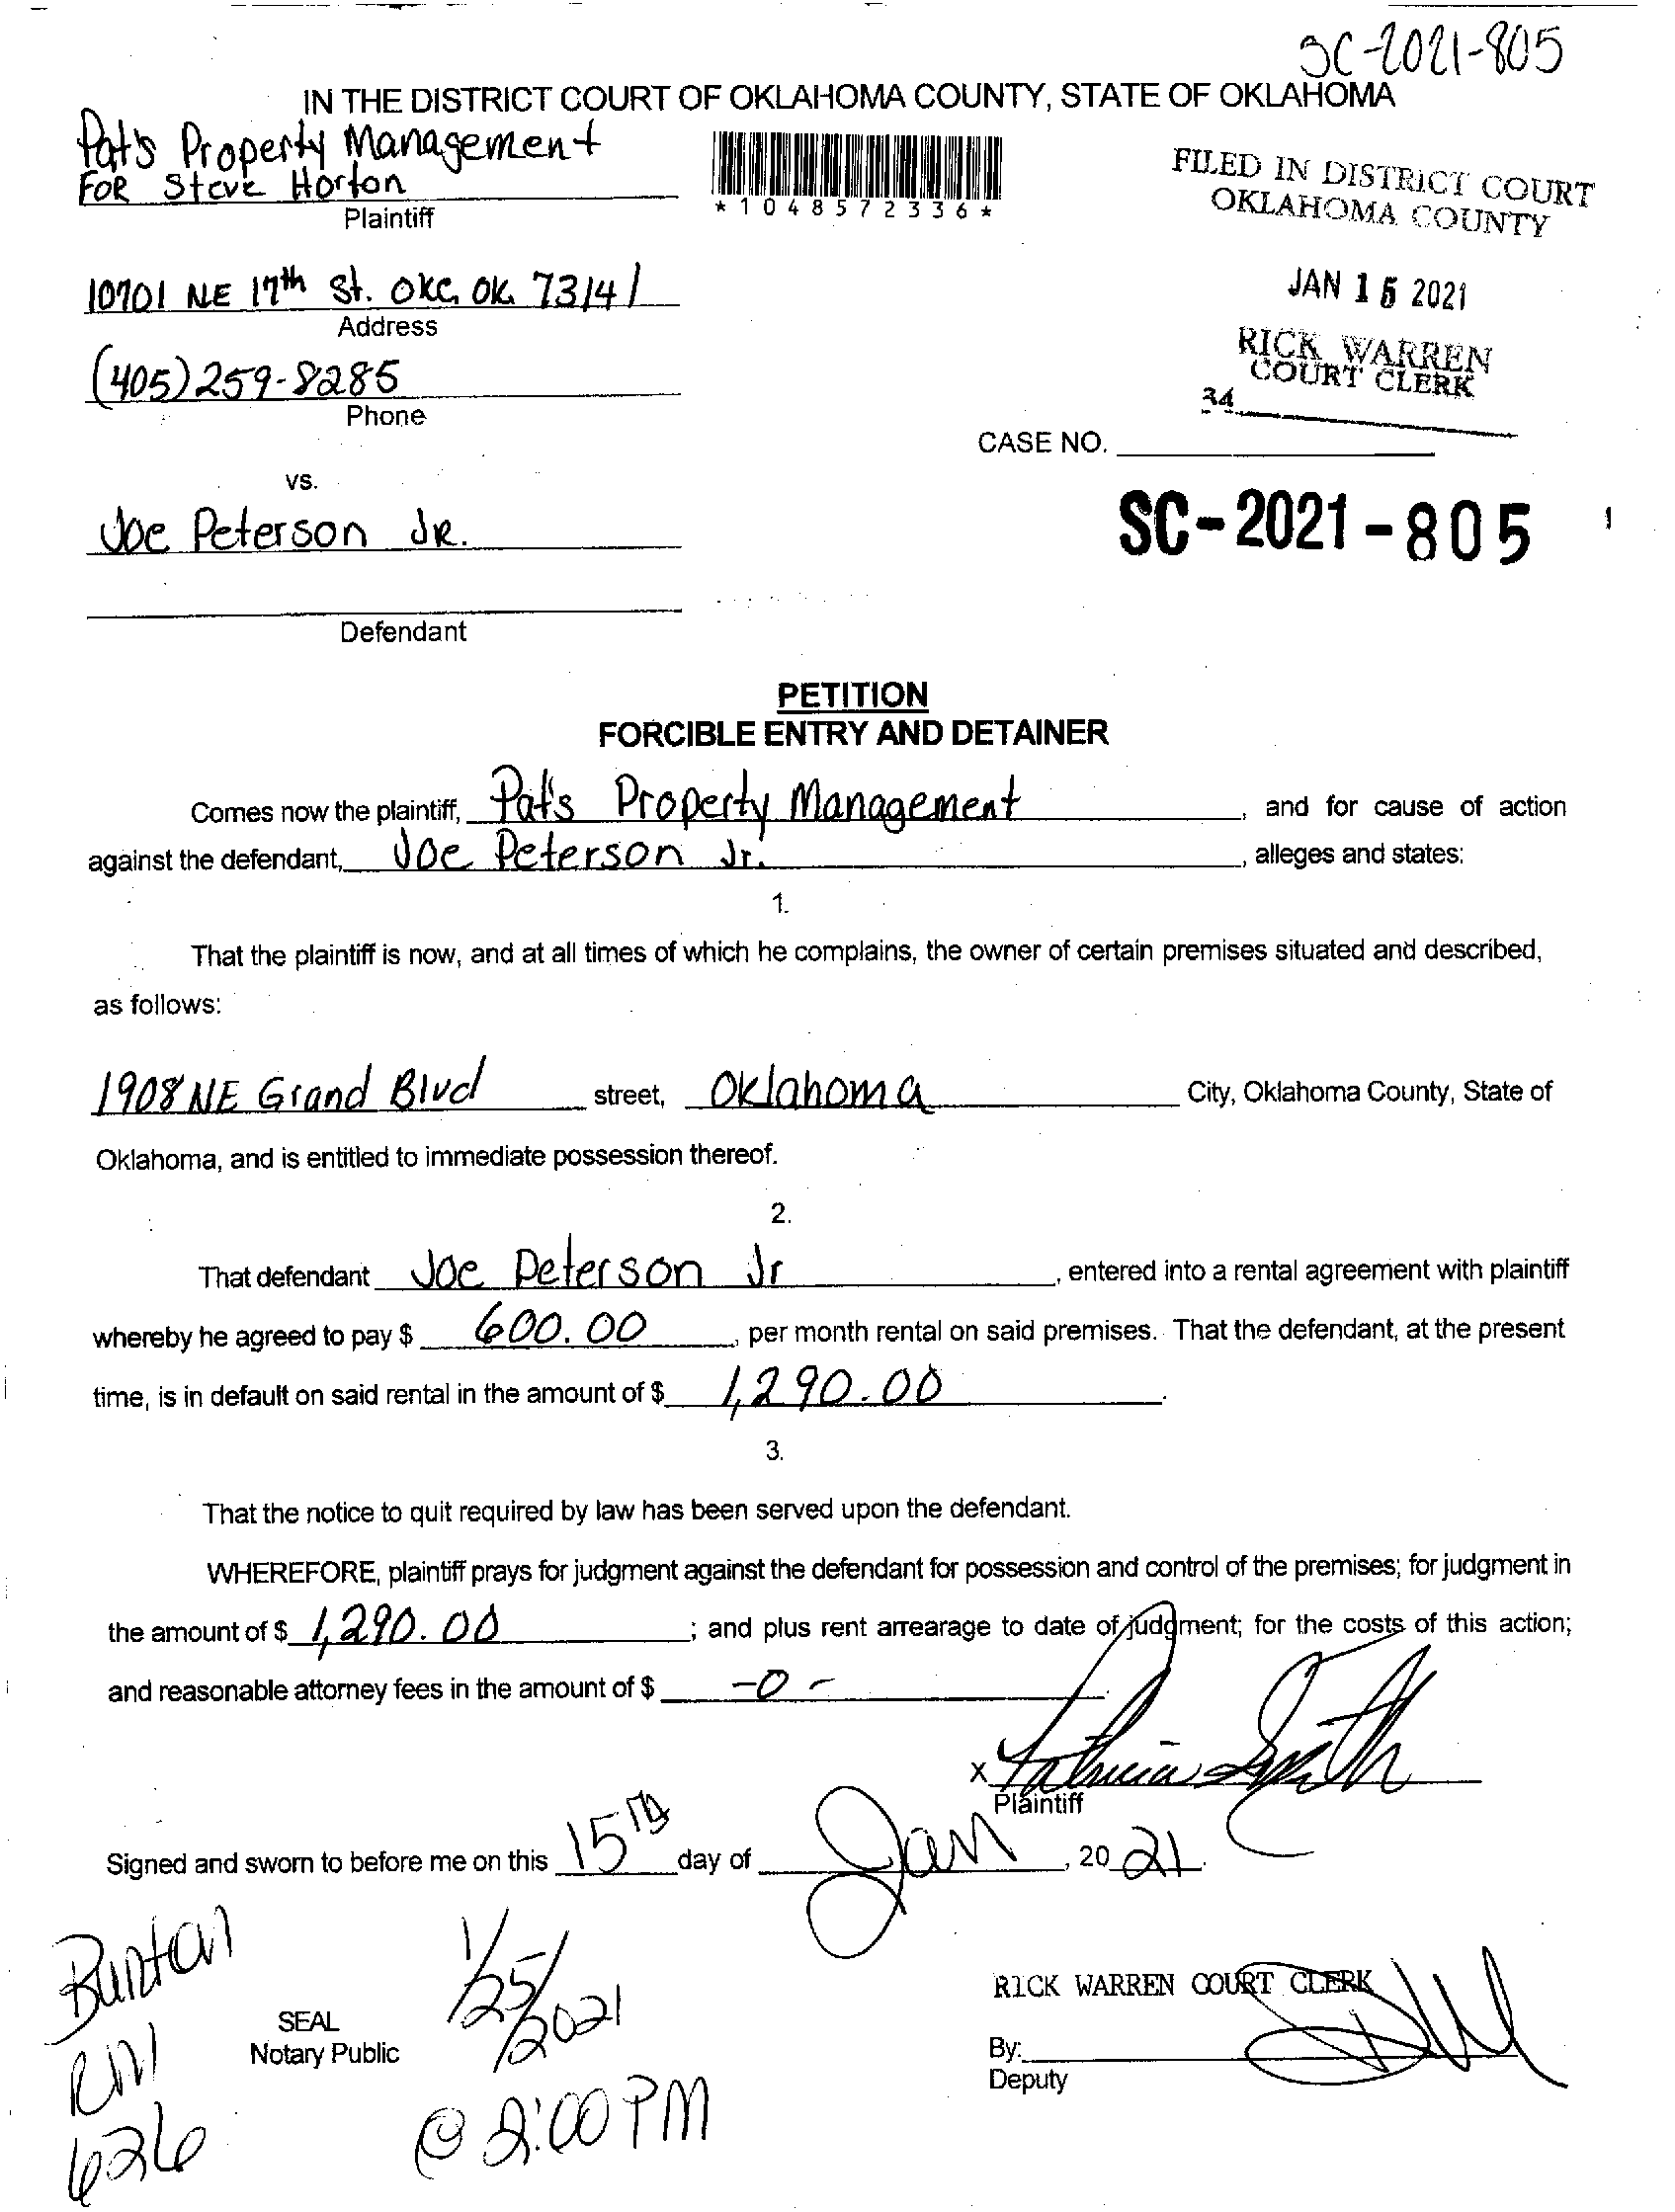 SC-2021-805
IN THE DISTRICT COURT OF OKLAHOMA COUNTY, STATE OF OKLAHOMA
Pat's Property Management
FOR Steve Horton
Plaintiff
*1048572336*
FILED IN DISTRICT COURT
OKLAHOMA COUNTY
10701 NE 17th St. OKC, OK. 73141
Address
JAN 15 2021
(405) 259-8285
Phone
RICK WARREN
COURT CLERK
34
CASE NO.
vs.
Joe Peterson JR.
SC-2021-805
Defendant
PETITION
FORCIBLE ENTRY AND DETAINER
Comes now the plaintiff, Pat's Property Management, and for cause of action
against the defendant, Joe Peterson Jr., alleges and states:
1.
That the plaintiff is now, and at all times of which he complains, the owner of certain premises situated and described,
as follows:
1908 NE Grand Blvd street, Oklahoma City, Oklahoma County, State of
Oklahoma, and is entitled to immediate possession thereof.
2.
That defendant Joe Peterson Jr, entered into a rental agreement with plaintiff
whereby he agreed to pay $ 600.00, per month rental on said premises. That the defendant, at the present
time, is in default on said rental in the amount of $ 1,290.00.
3.
That the notice to quit required by law has been served upon the defendant.
WHEREFORE, plaintiff prays for judgment against the defendant for possession and control of the premises; for judgment in
the amount of $ 1,290.00; and plus rent arrearage to date of judgment; for the costs of this action;
and reasonable attorney fees in the amount of $ -0-
x Patricia Smith
Plaintiff
Signed and sworn to before me on this 15TH day of Jan, 2021.
Buntan
RM
626
SEAL
Notary Public
1/25/2021
@ 2:00 PM
RICK WARREN COURT CLERK
By:
Deputy